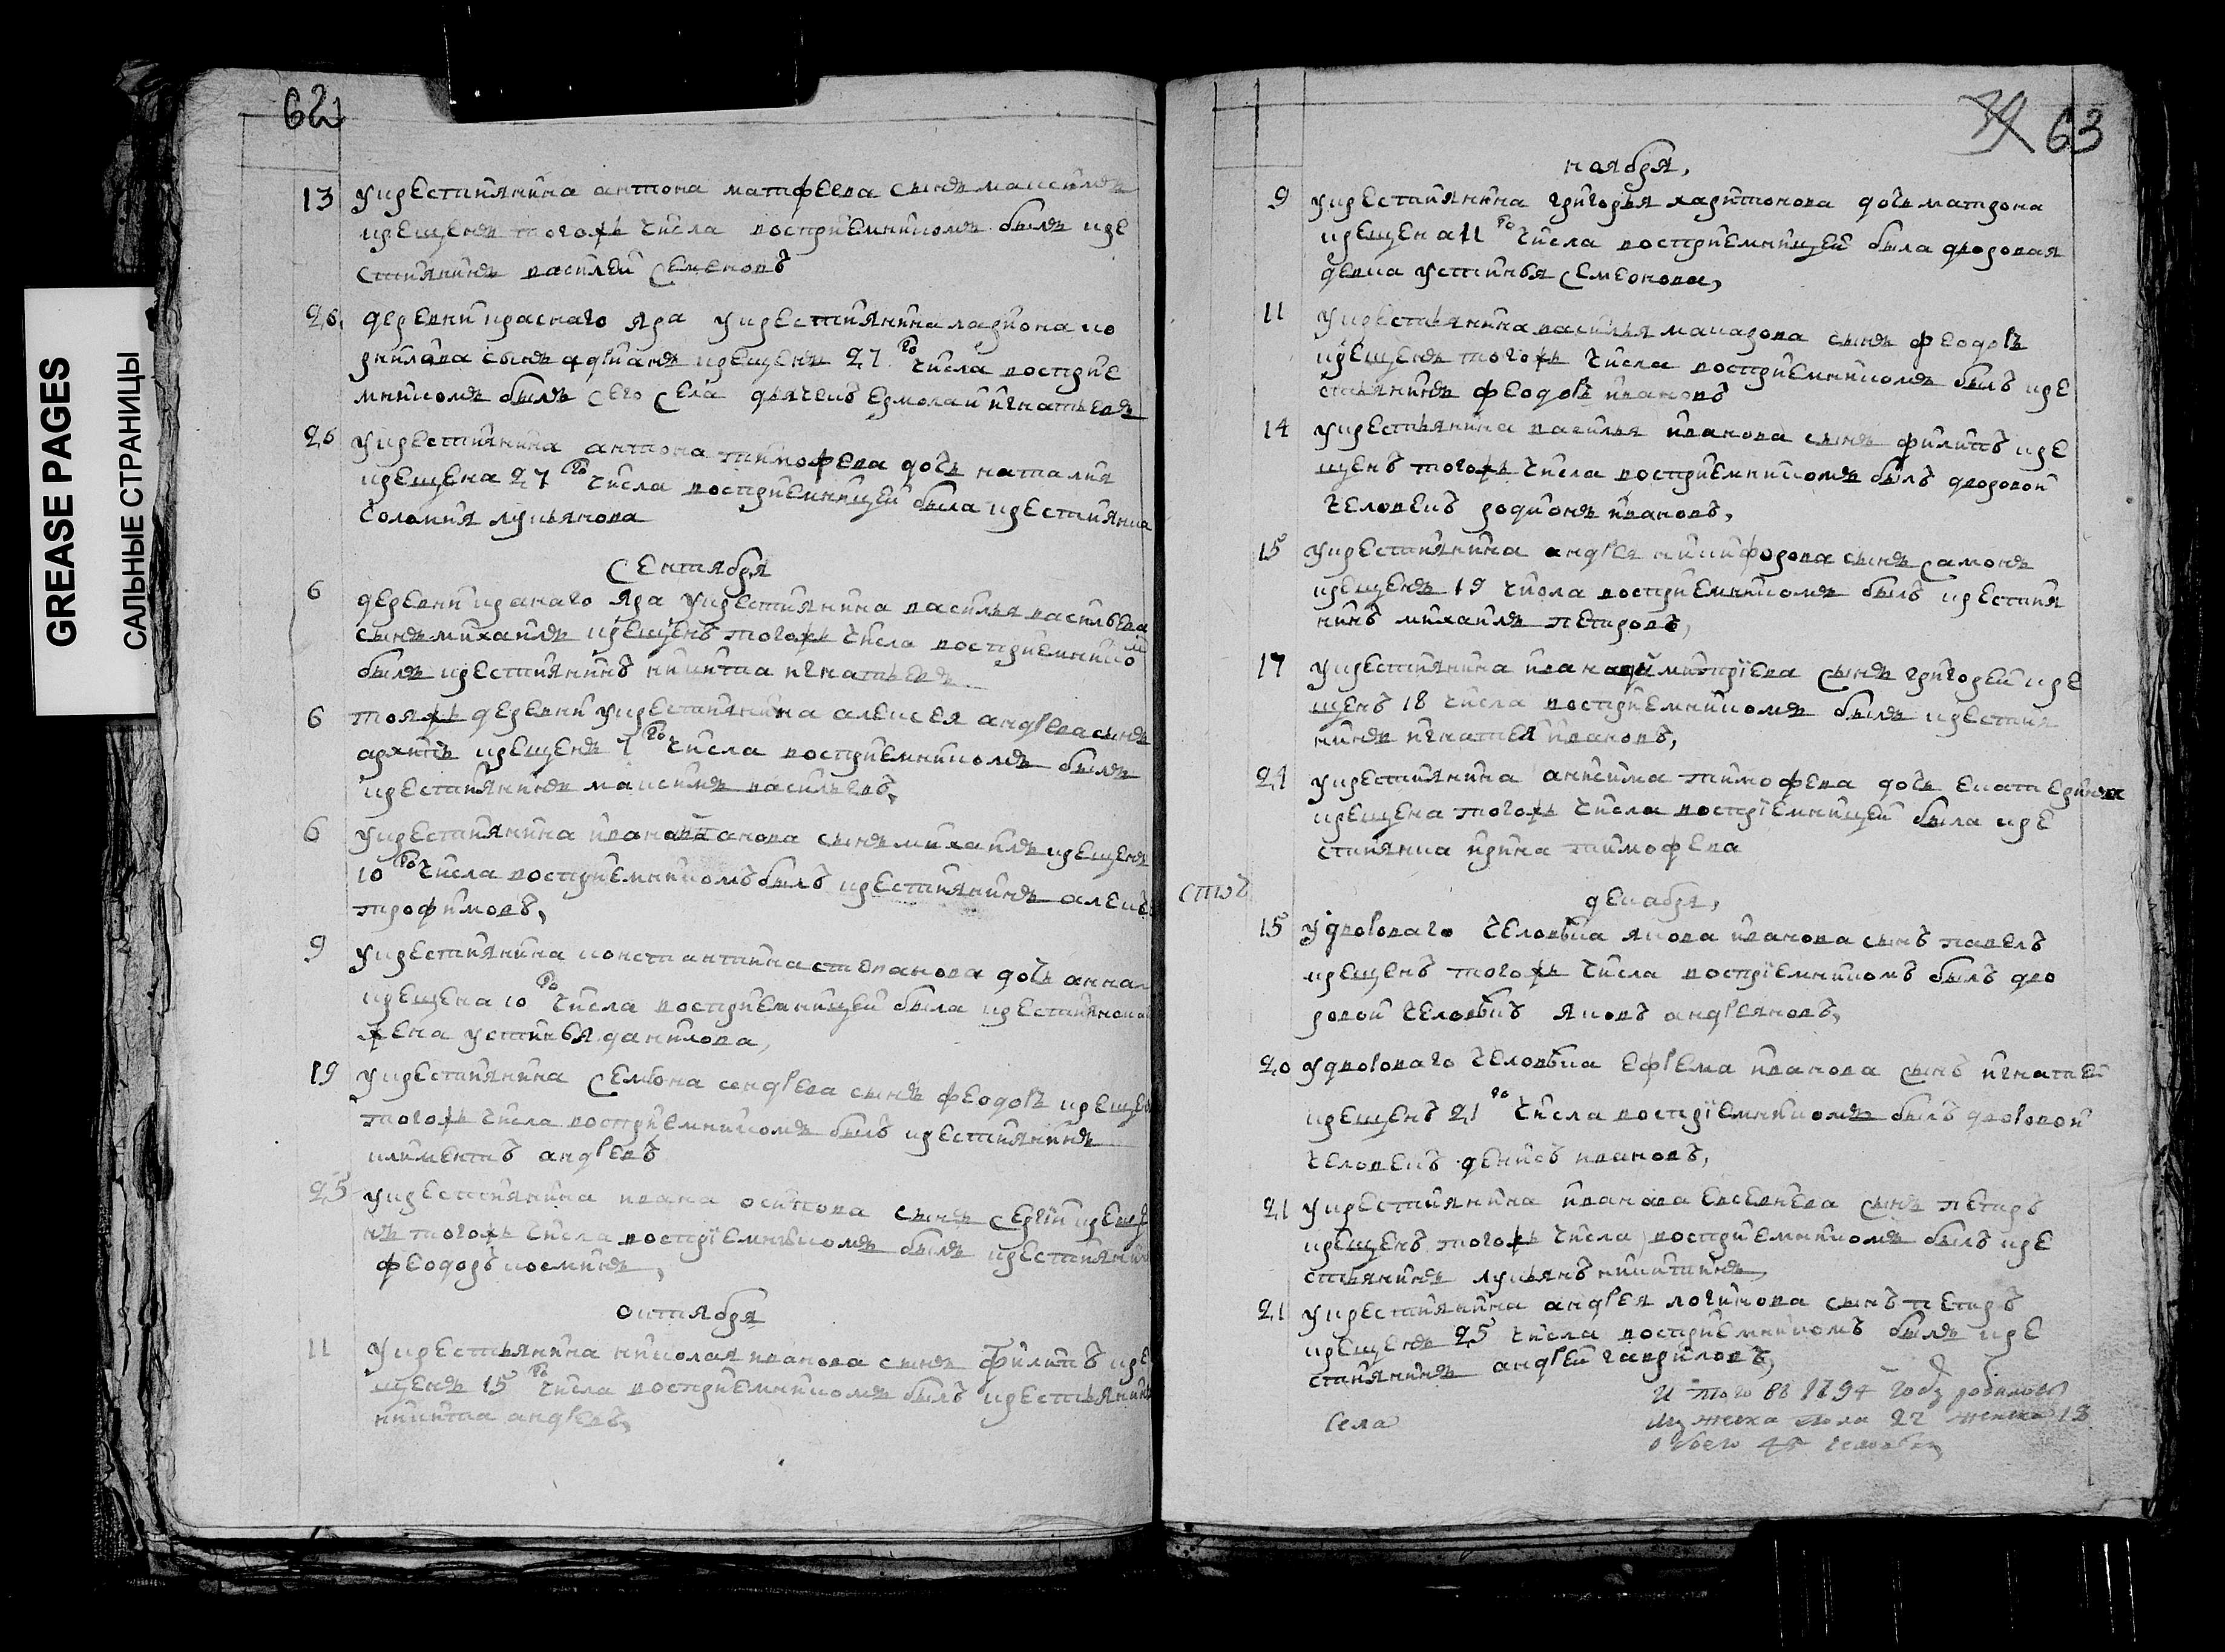 GREASE PAGES
САЛЬНЫЕ СТРАНИЦЫ
62
13 у крестиянина антона матфеева сынъ максимъ
крещенъ тогожь числа восприемникомъ былъ кре
стиянинъ василей семеновъ
26 деревни краснаго яра у крестиянина лариона ко
рнилова сынъ адрианъ крещенъ 27 го числа восприе
мникомъ былъ сего села дьячекъ ермолаи игнатьевъ
26 у крестиянина антона тимофеева дочь наталия
крещена 27 го числа восприемницей была крестиянка
соломия лукьянова
сентября
6 деревни кранаго яра у крестиянина василья васильева
сынъ михаилъ крещенъ тогожь числа восприемником
былъ крестиянинъ никита игнатьевъ
6 тояжь деревни у крестиянина алексея андрева сынъ
архипъ крещенъ го числа восприемникомъ былъ
крестиянинъ максимъ васильевъ,
6 у крестиянина ивана сынъ михаилъ крещенъ
10 го числа восприемникомъ былъ крестиянинъ
трофимовъ,
9 у крестиянина константина степанова дочь анна
крещена 10 го числа восприемницей была крестиянска
жена устинья данилова,
19 у крестиянина семиона сынъ феодоръ крещен
тогожь числа восприемникомъ былъ крестиянинъ
климентъ андревъ
25 у крестиянина ивана осипова сынъ сергии креще
нъ тогожь числа восприемникомъ былъ крестиянин
феодоръ козминъ,
октября
11 у крестьянина николая иванова сынъ филипъ кре
щенъ 15 го числа восприемникомъ былъ крестьянинъ
никита андревъ,
63
ноября,
9 у крестиянина григорья харитонова дочь матрона
крещена 11 го числа восприемницей была дворовая
девка устинья семеонова,
11 у крестьянина василья макарова сынъ феодоръ
крещенъ тогожь числа восприемникомъ былъ кре
стьянинъ феодоръ ивановъ
14 у крестьянина василья иванова сынъ филипъ кре
щенъ тогожь числа восприемникомъ былъ дворовой
человекъ родионъ ивановъ,
15 у крестиянина андрея никифорова сынъ самонъ
крещенъ 19 числа восприемникомъ былъ крестия
нинъ михаилъ петровъ,
17 у крестиянина ивана димитриева сынъ григорей кре
щенъ 18 числа восприемникомъ былъ крестия
нинъ игнатей ивановъ,
24 у крестиянина анисима тимофева дочь екатерина
крещена тогожь числа восприемницей была кре
стиянка ирина тимофева
декабря,
15 у двороваго человѣка якова иванова сынъ павелъ
крещенъ тогожь числа восприемникомъ былъ дво
ровой человѣкъ яковъ андреяновъ,
20 у двороваго человѣка ефрема иванова сынъ игнатей
крещенъ 21 го числа восприемникомъ былъ дворовой
человекъ денисъ ивановъ,
21 у крестиянина ивана евсевиева сынъ петръ
крещенъ тогожь числа восприемникомъ былъ кре
стьянинъ лукьянъ никитинъ,
21 у крестиянина андрея логинова сынъ петръ
крещенъ 25 числа восприемникомъ былъ кре
стиянинъ андрей гавриловъ,
Села
И того въ 1794 году родилось
мужеска пола 22 женска
обоего человекъ